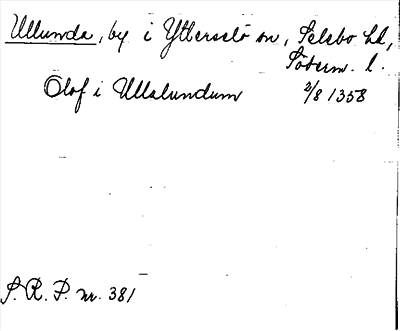 Ullunda, by i Ytterselö sn, Selebo hd,
Söderm. l.
Olof i Ullalundum 2/8 1358
S. R. P. nr. 381